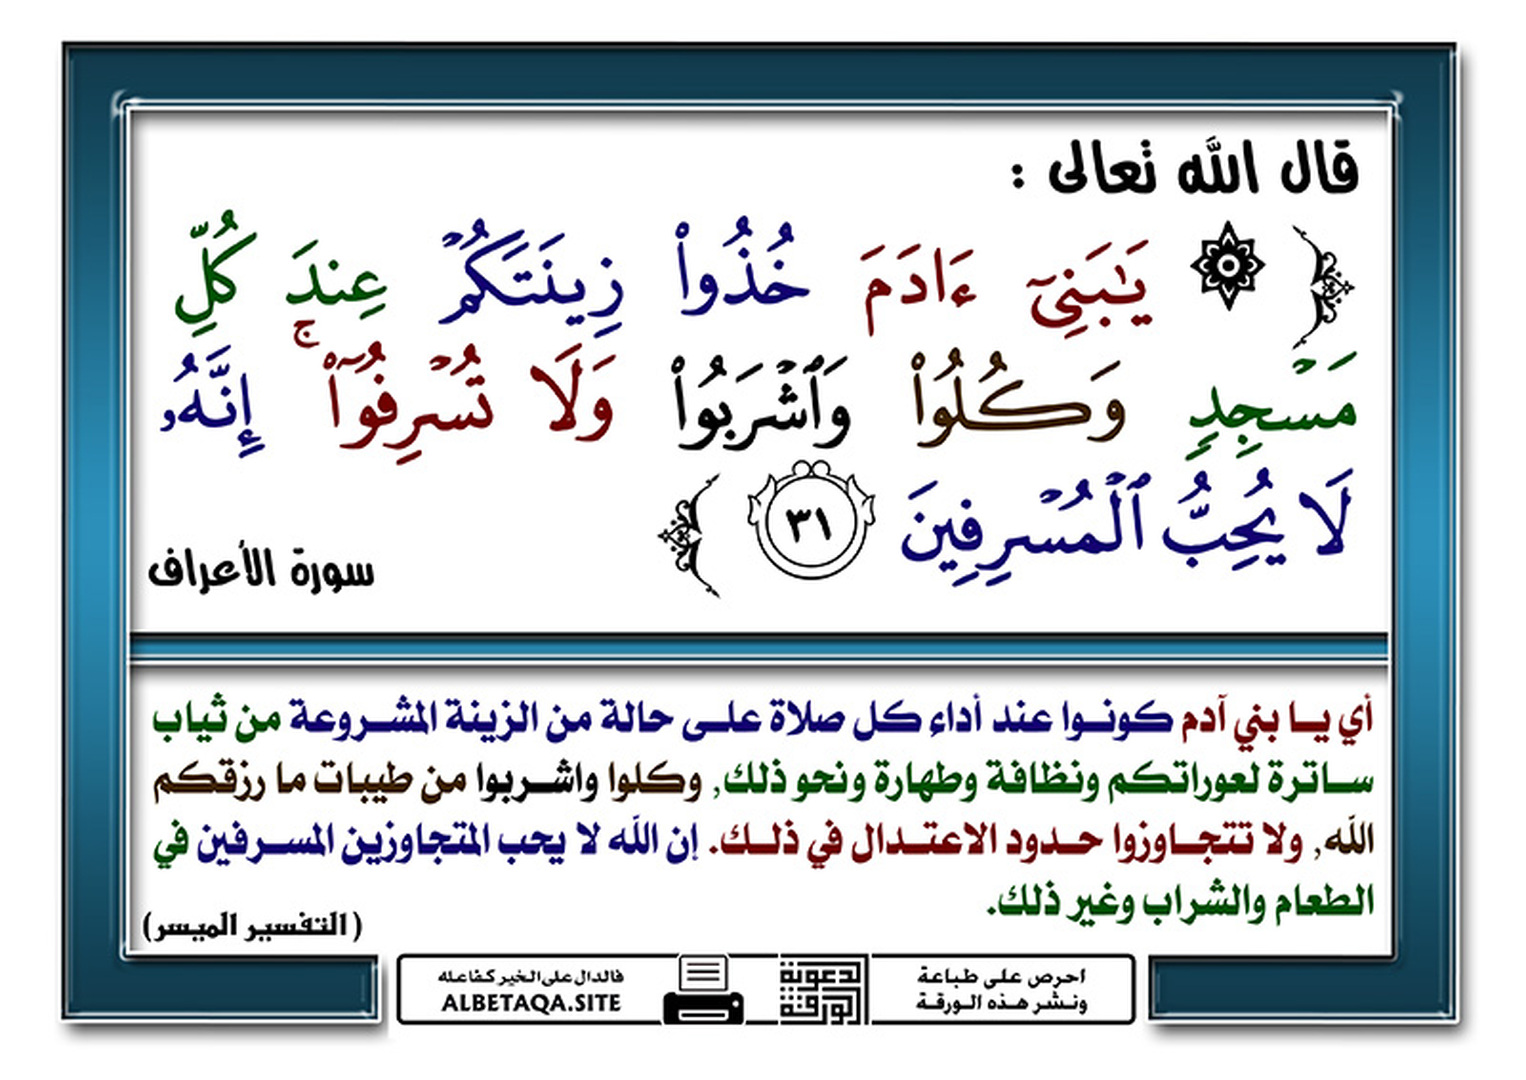 قال الله تعالى :
﴿ ۞ يَٰبَنِيٓ ءَادَمَ خُذُواْ زِينَتَكُمۡ عِندَ كُلِّ
مَسۡجِدٖ وَكُلُواْ وَٱشۡرَبُواْ وَلَا تُسۡرِفُوٓاْۚ إِنَّهُۥ
لَا يُحِبُّ ٱلۡمُسۡرِفِينَ ٣١ ﴾
سورة الأعراف
أي يا بني آدم كونوا عند أداء كل صلاة على حالة من الزينة المشروعة من ثياب
ساترة لعوراتكم ونظافة وطهارة ونحو ذلك, وكلوا واشربوا من طيبات ما رزقكم
الله, ولا تتجاوزوا حدود الاعتدال في ذلك. إن الله لا يحب المتجاوزين المسرفين في
الطعام والشراب وغير ذلك.
(التفسير الميسر)
احرص على طباعة
ونشر هذه الورقة
الدعوية
الورقة
فالدال على الخير كفاعله
ALBETAQA.SITE